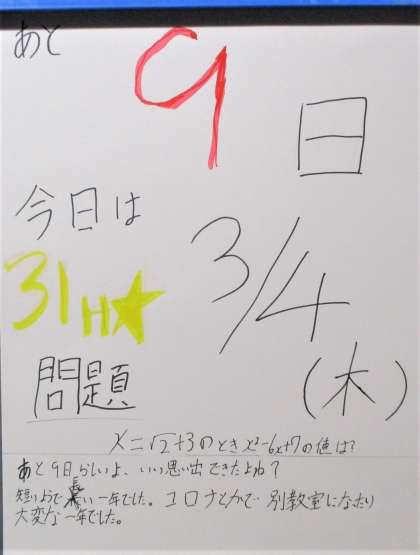 あと
9
日
今日は
3/4
31H★
問題
(木)
x=√2+3のときx²-6x+7の値は?
あと9日らしいよ、いい思い出できたよね?
短いようで長い一年でした。コロナとかで別教室になたり
大変な一年でした。